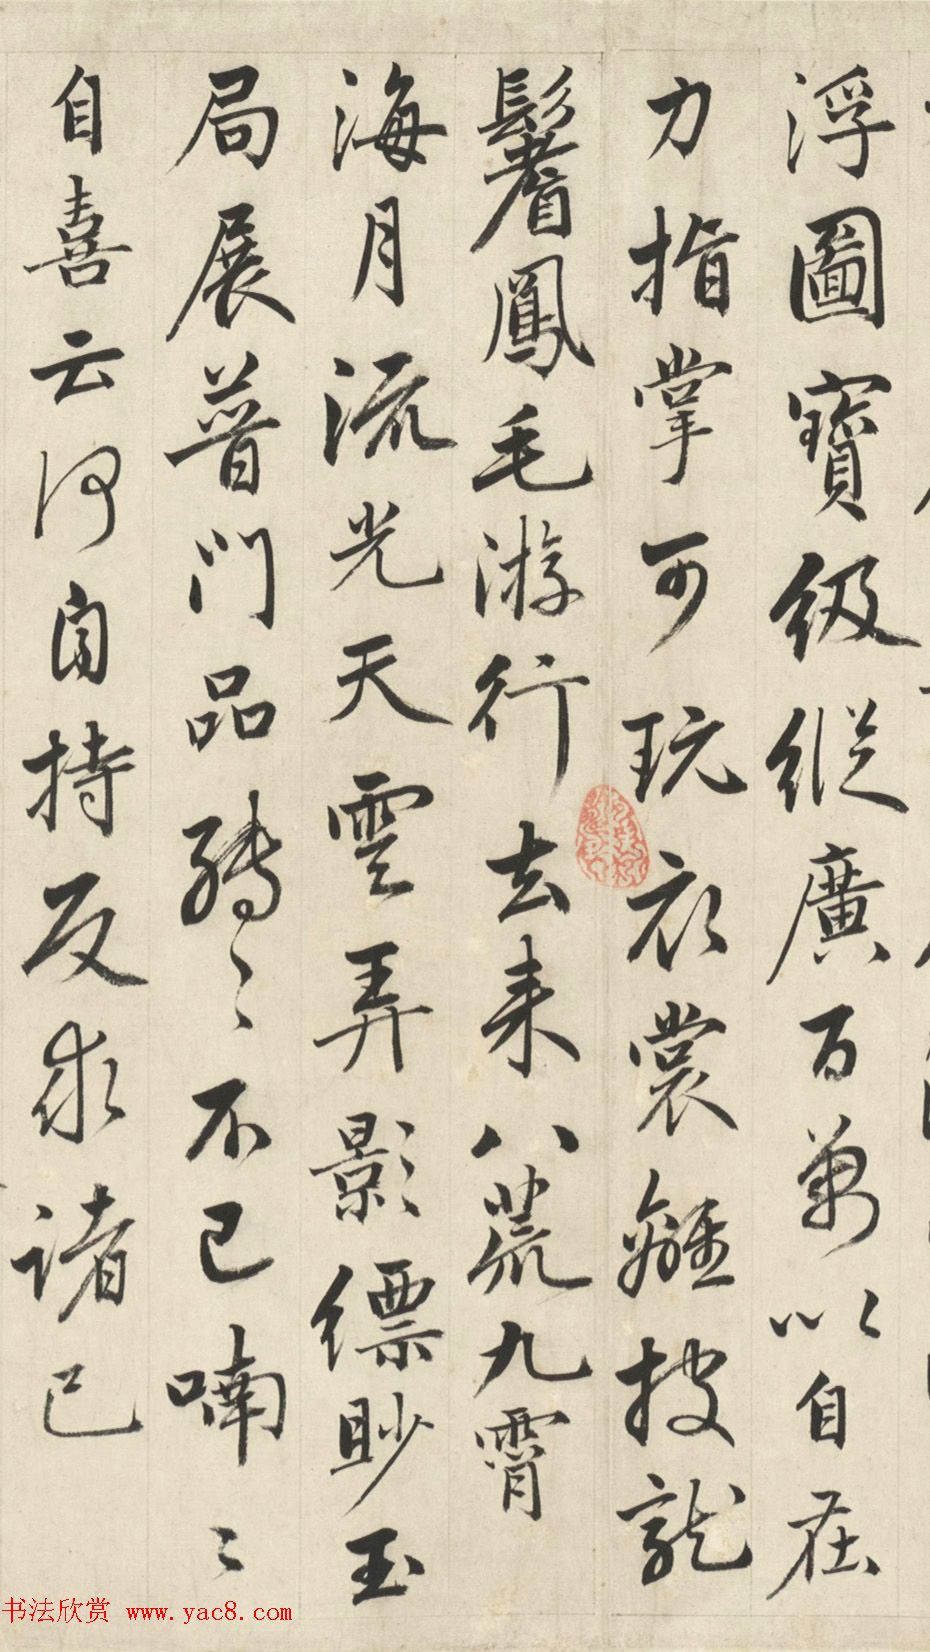 浮圖寶級縱廣百萬以自在
力指掌可玩衣裳離披龍
鬐鳳毛游行去来八荒九霄
海月流光天雲弄影縹眇玉
局展普門品轉〻不已喃〻
自喜云何自持反求諸己
书法欣赏 www.yac8.com